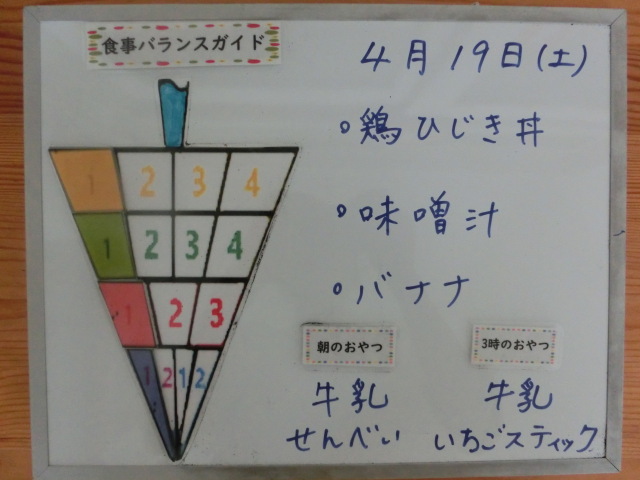 食事バランスガイド
4月19日(土)
1 2 3 4
1 2 3 4
1 2 3
1 2 1 2
。鶏ひじき丼
。味噌汁
。バナナ
朝のおやつ
牛乳
せんべい
3時のおやつ
牛乳
いちごスティック